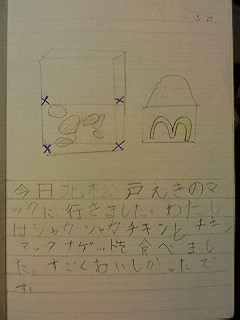 3 21
今日北松戸えきのマ
ックに、行きました。わたし
はシャカシャカチキンと、チキン
マックナゲットを食べまし
た。すごくおいしかったで
す。